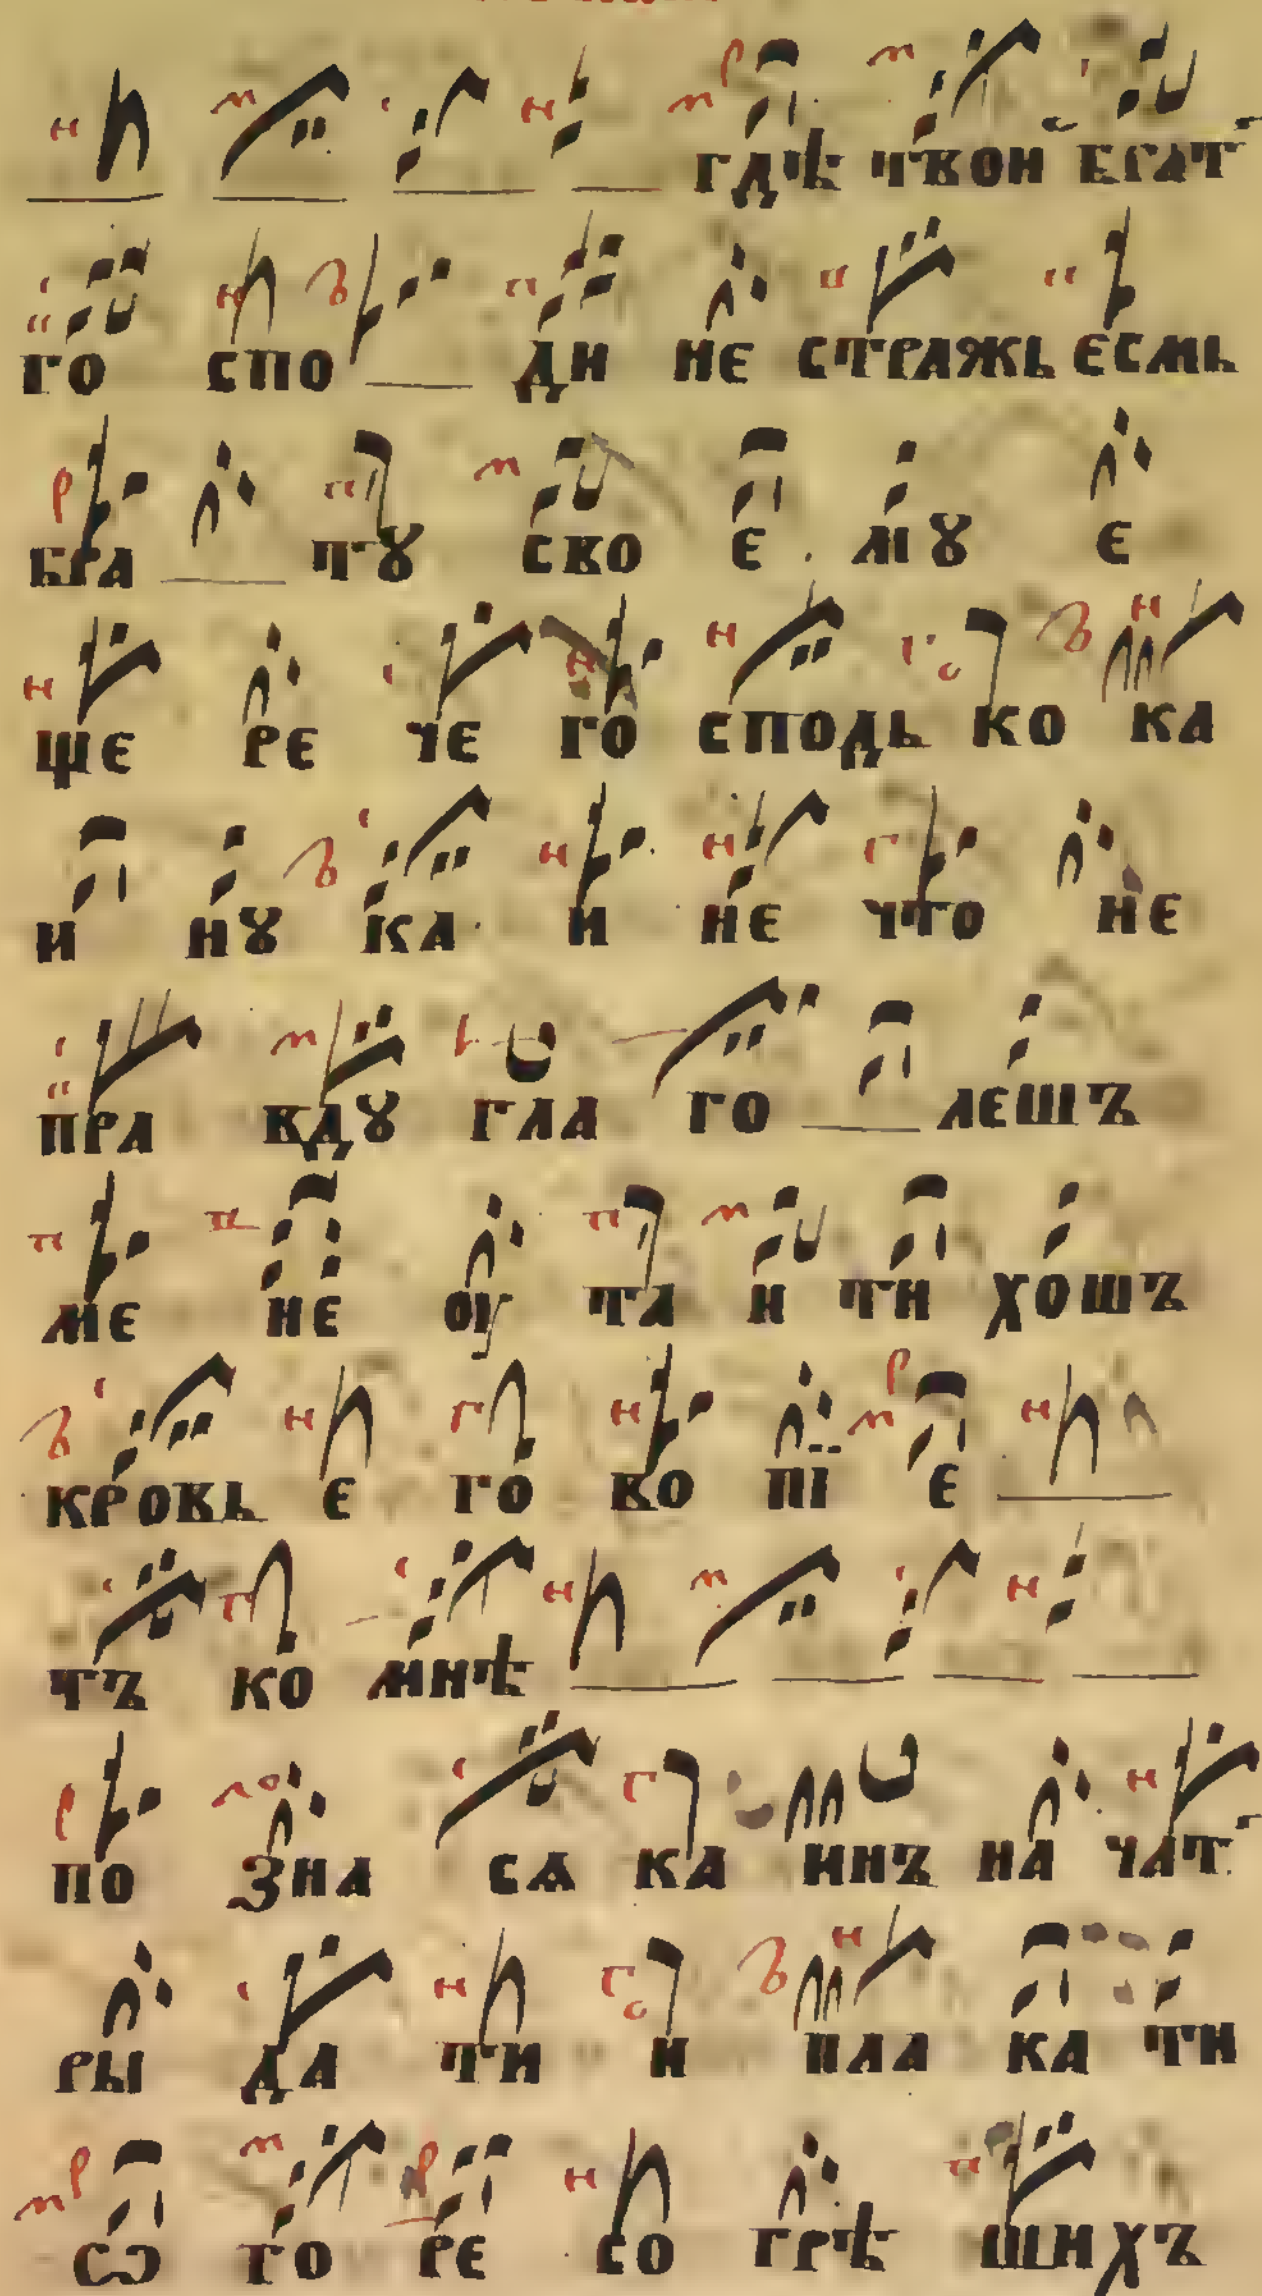 гдѣ твои братъ
го спо ди не стражь есмь
бра ту сво е мꙋ е
ще ре че го сподь ко ка
и нꙋ ка и не что не
пра вдꙋ гла го лешъ
ме не оу та и ти хошъ
кровь е го во пі е
тъ ко мнѣ
по зна сѧ ка инъ на чат
ры да ти и пла ка ти
сѡ го ре со грѣ шихъ